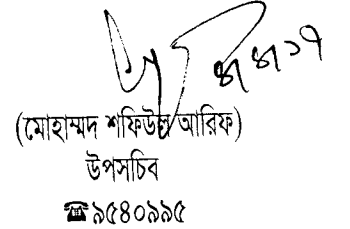 (মোহাম্মদ শফিউল আরিফ)
উপসচিব
☎৯৫৪০৯৯৫